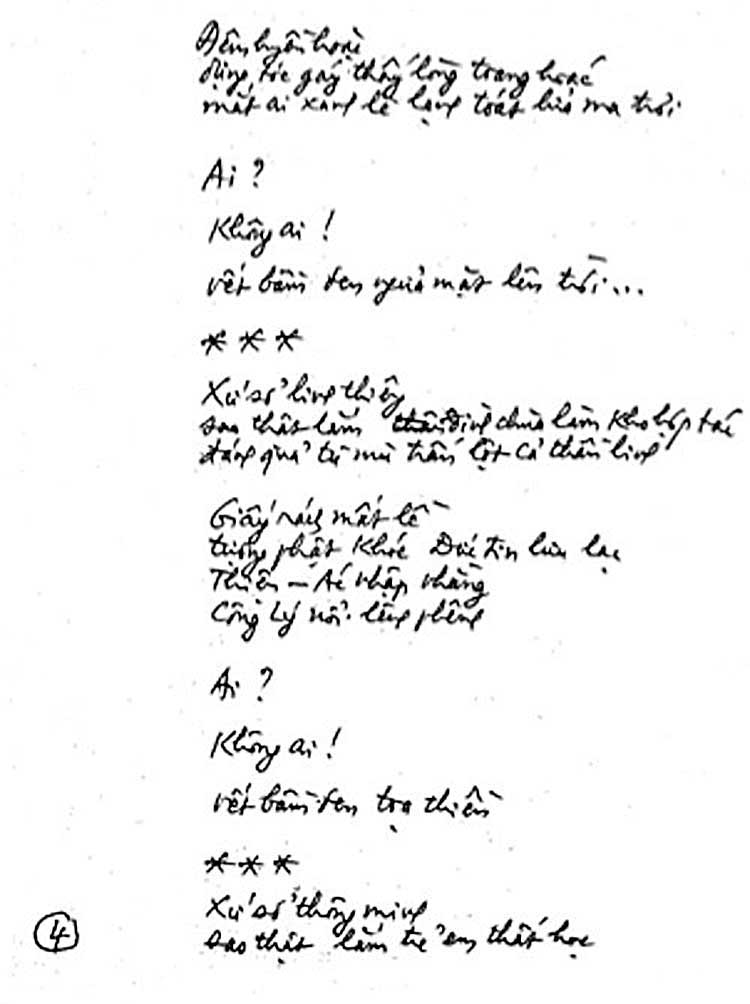 Đêm huyền hoặc
dựng tóc gáy thấy lòng toang hoác
mắt ai xanh lè lạnh toát lửa ma trơi
Ai ?
Không ai !
vết bầm đen ngửa mặt lên trời...
* * *
Xứ sở linh thiêng
sao thật lắm đình chùa làm kho hợp tác
đánh quả tù mù trấn lột cả thần linh
Giấy rách mất lề
tượng phật khóc Đức tin lưu lạc
Thiện – Ác nhập nhằng
Công Lý nổi lênh phênh
Ai ?
Không ai !
vết bầm đen tọa thiền
* * *
Xứ sở thông minh
sao thật lắm trẻ em thất học
4